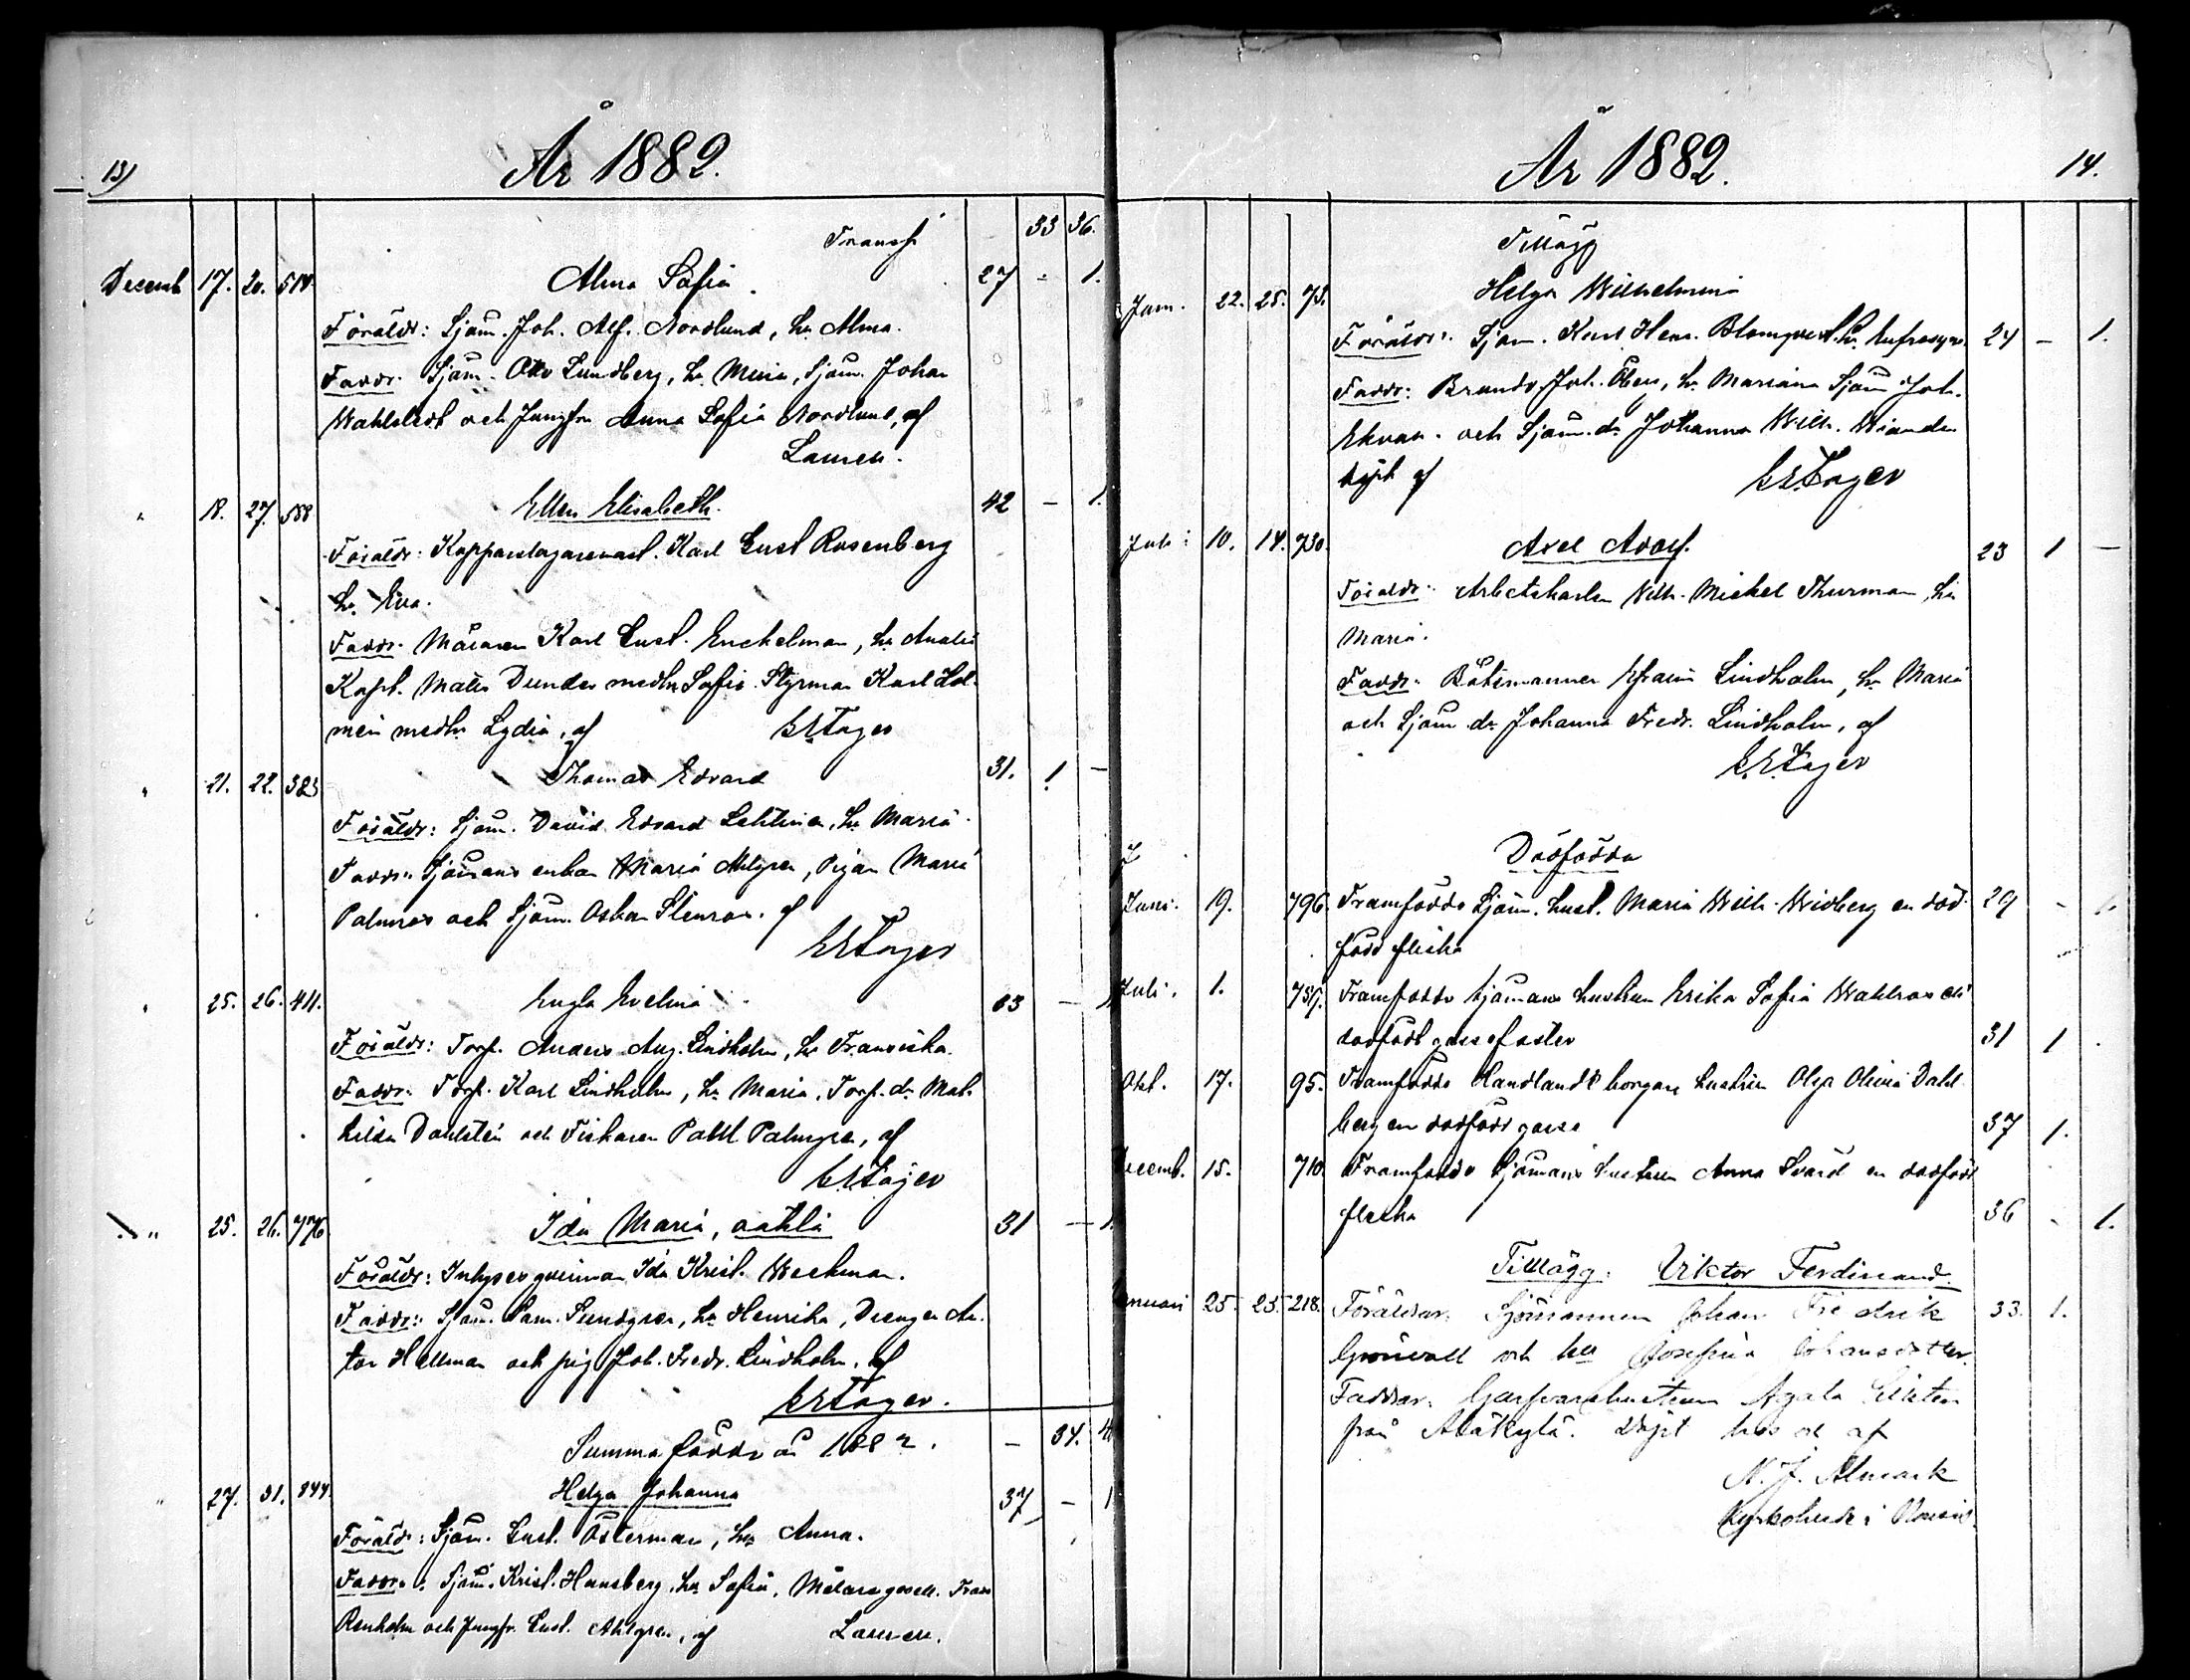 13)
År 1882.
Transp. 33 36.
Decemb 17. 20. 514. Alma Sofia. 27 - 1.
Föräldr: Sjöm. Joh. Alf. Nordlund, hu Alma.
Faddr. Sjöm. Otto Lundberg, hu Maria, Sjöm. Johan
Wahlstedt och Jungfru Anna Sofia Nordlund, af
Lauren.
" 18. 27. 588 Ellen Elisabeth. 42 - 1.
Föräldr: Kopparslagaremast. Karl Gust Rosenberg
hu Eva.
Faddr. Målaren Karl Gust. Enckelman, hu Amalia
Kapt. Matts Dunder med hu Sofia. Styrman Karl Hol-
mén med hu Lydia, af
" 21. 22. 383 Thomas Edvard 31. 1 -
Föräldr: Sjöm. David Edvard Lehtinen, hu Maria.
Faddr: Sjömans enkan Maria Ahlgren, Pigan Maria
Palmros och Sjöm. Oskar Stenroos. af
" 25. 26. 411. Engla Evelina 33 -
Föräldr: Torp. Anders Aug. Lindholm, hu Fransiska.
Faddr. Torp. Karl Lindholm, hu Maria, Torp. dr Mat-
hilda Dahlstén och Fiskaren Palmgren, af
" 25. 26. 776 Ida Maria, oäkta 31 - 1.
Föräldr: Inhyses qvinnan Ida Krist. Weckman.
Faddr: Sjöm. Sam. Sundgren, hu Henrika, Drengen An-
ton Hellman och pig. Joh. Fredr. Lindholm. af
Summa födda år 1882. - 34. 4
" 27. 31. 844. Helga Johanna 37 - 1
Föräldr: Sjöm. Gust. Österman, hu Anna.
Faddr.: Sjöm. Krist. Hansberg, hu Sofia, Målaregesell. Frans
Renholm och Jungfr. Gust. Ahlgren, af Lauren.
År 1882. 14.
Tillägg
Jan. 22. 25. 73. Helga Wilhelmina
Föräldr. Sjöm. Karl Henr. Blomqvist, hu Eufrosyne. 24 - 1.
Faddr: Brandv. Joh. Öberg, hu Mariana Sjöm Joh.
Ekman och Sjöm. dr Johanna Wilh. Wiander
döpt af
Juli 10. 14. 730. Axel Adolf. 23 1 -
Föräldr: Arbetskarlen Wilh. Mickel Thurman, hu
Maria.
Faddr. Båtsmannen Efraim Lindholm, hu Maria
och Sjöm dr Johanna Fredr. Lindholm, af
Dödfödda
Juni. 19. 796. Framfödde Sjöm. hust. Maria Wilh. Widberg en död- 29 - 1.
född flicka
Juli. 1. 757. Framfödde Sjömans hustrun Erika Sofia Wahlroos ett
dödfödt gossefoster 31 1
Okt. 17. 95. Framfödde Handlande borgare hustrun Olga Olivia Dahl-
berg en dödfödd gosse 37 1.
Decemb. 15. 710. Framfödde Sjömans hustrun Anna Svärd en dödfödd
flicka 36 - 1.
Tillägg: Viktor Ferdinand.
Januari 25. 25. 218. Föräldrar: Sjömannen Johan Fredrik 33. 1.
Grönvall och hu Josefina Johansdotter.
Faddrar: Garfvarehustrun Agata
från Alakylä. Döpt af
N. J. Almark
Kyrkoherde i